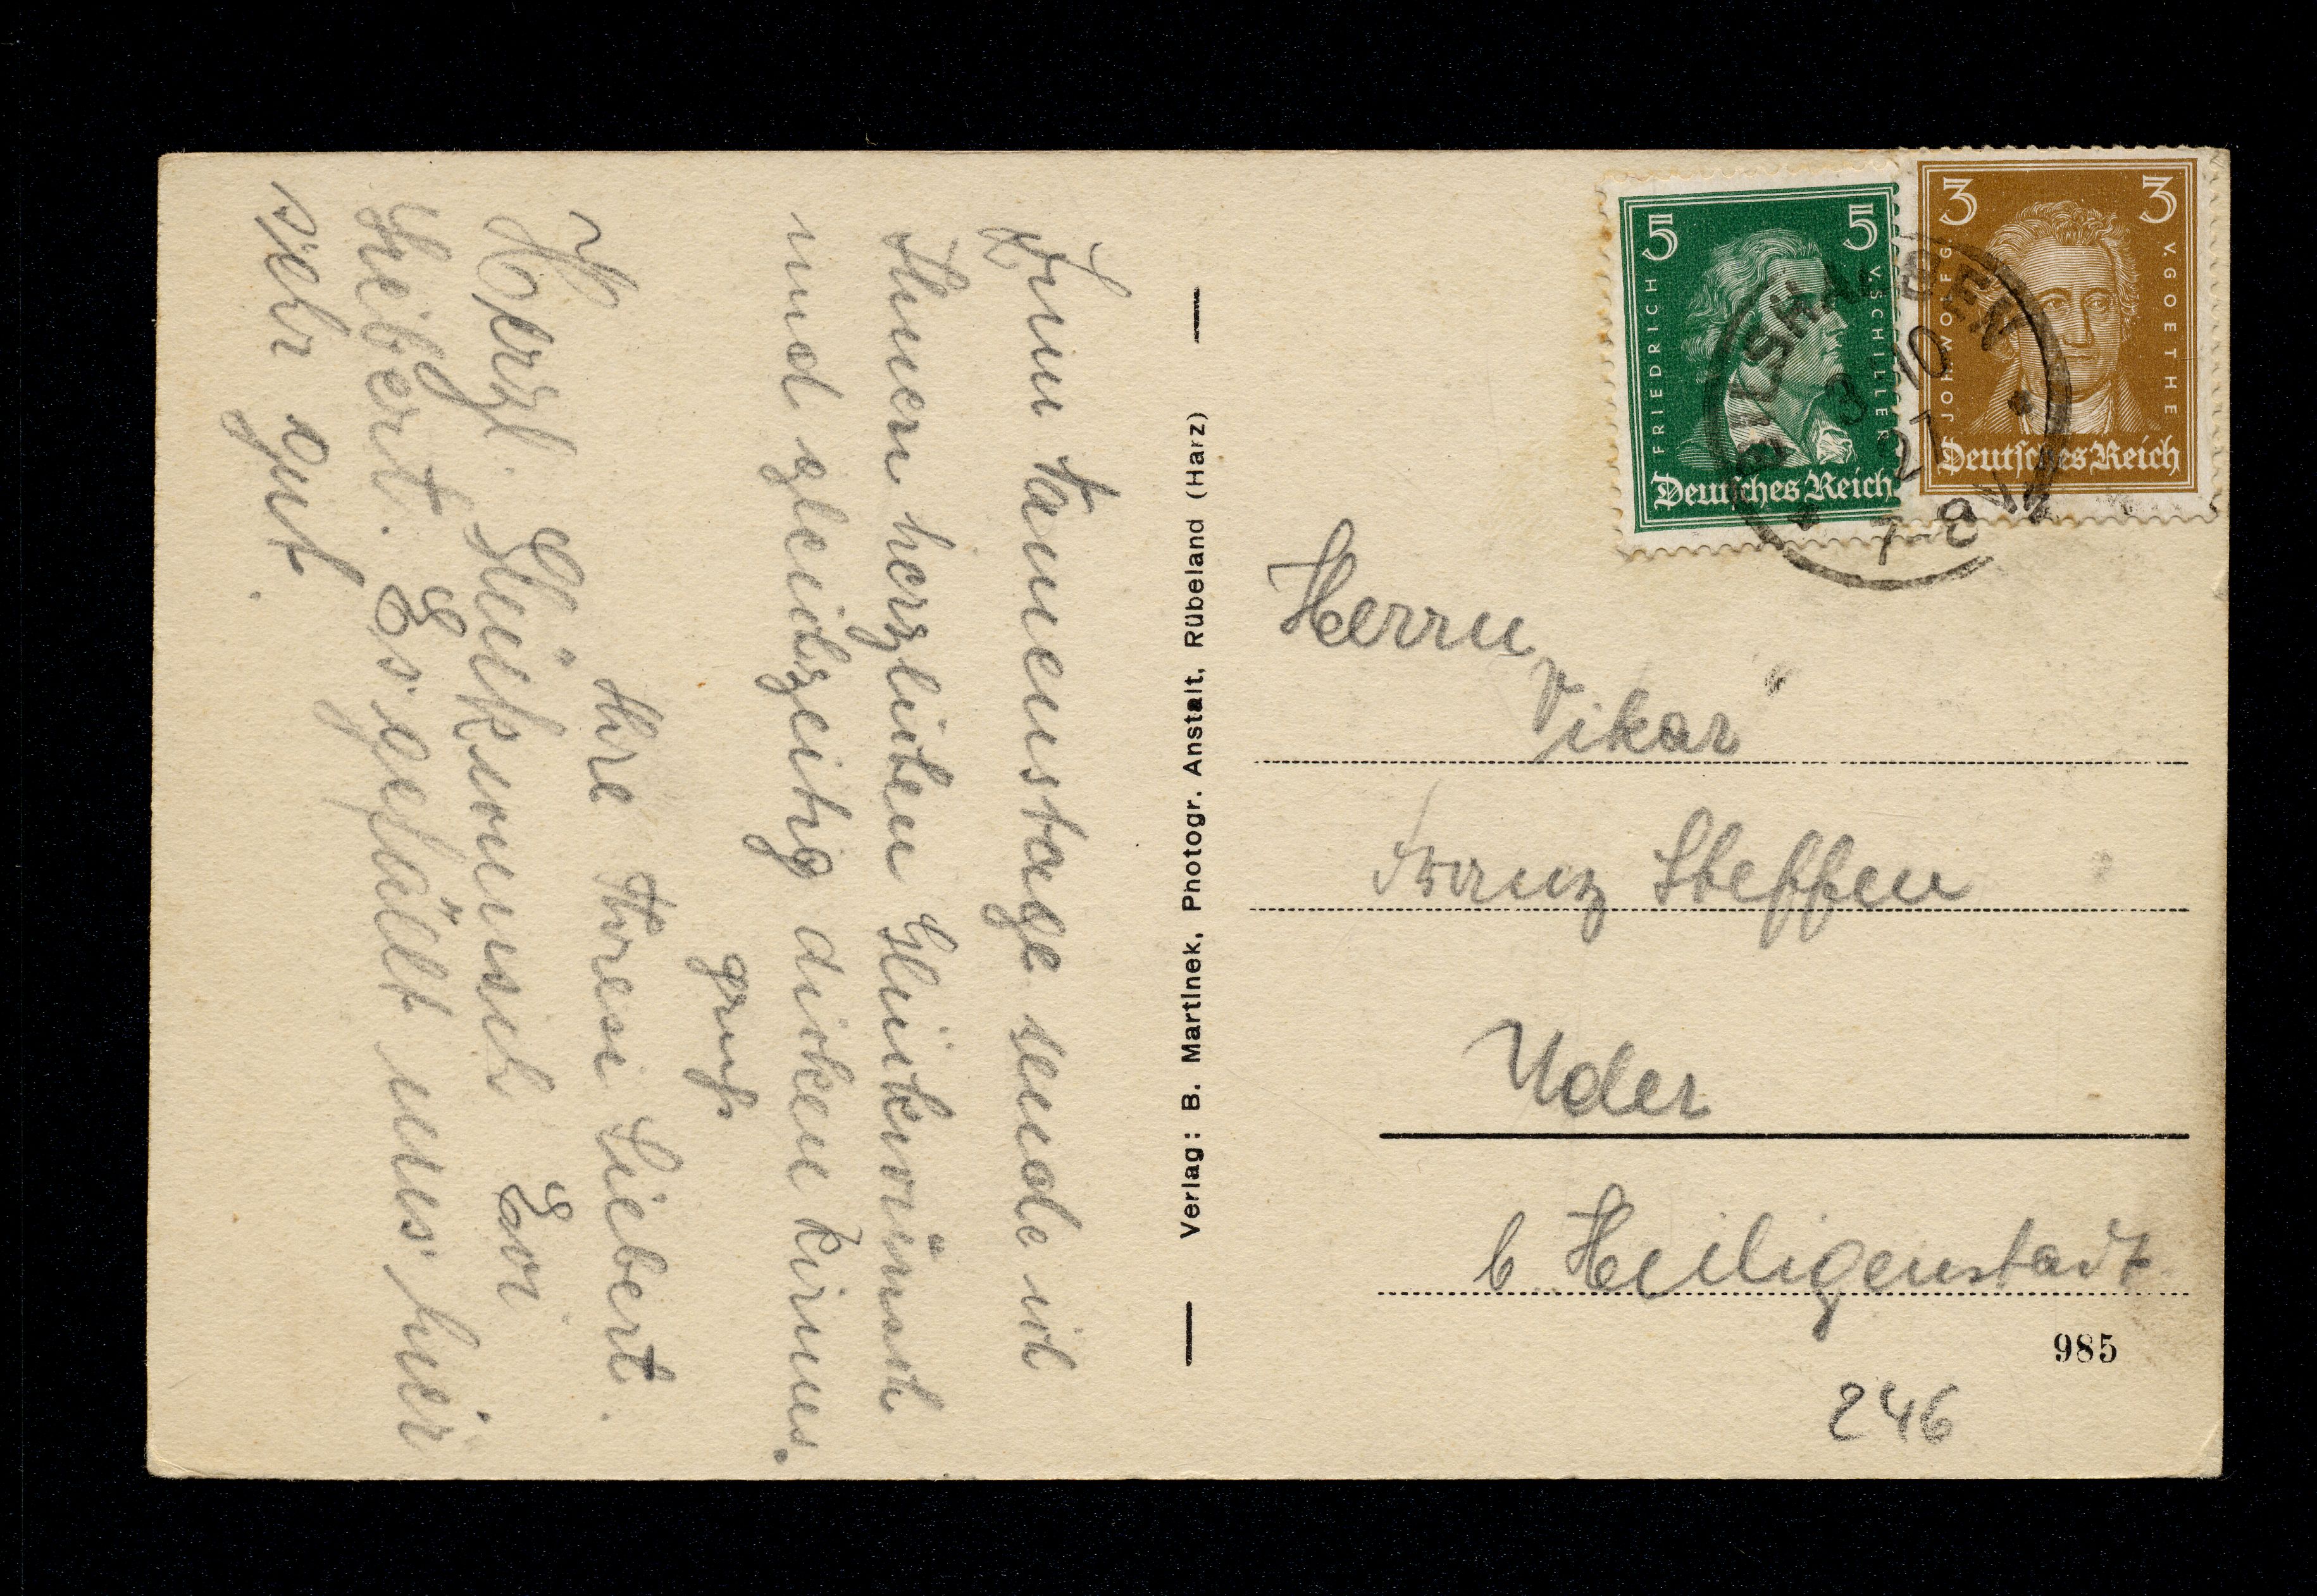 Zum Namenstage sende ich
Ihnen herzlichen Glückwunsch
und gleichzeitig dicken Kirmes.
gruß
Ihre Theresi Liebert.
Herzl. Glückwunsch Evi
Liebert. Es gefällt uns hier
sehr gut.
Verlag: B. Martinek, Photogr. Anstalt, Rübeland (Harz)
5 5
FRIEDRICH V. SCHILLER
Deutsches Reich
3 3
JOH. WOLFG. V. GOETHE
Deutsches Reich
3 10 27
7-8 V
Herrn
"Vikar"
Franz Steffen
Uder
b. Heiligenstadt
985
246